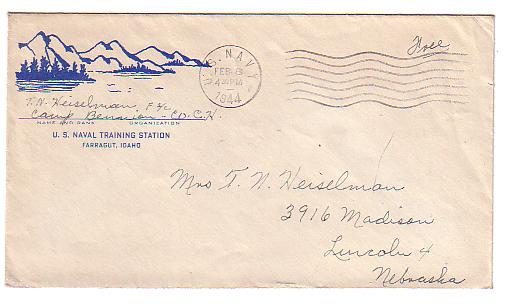 U.S. NAVY
FEB 8
4 PM
1944
Free
T. N. Heiselman, F 1/c
Camp Bennion - Co. C.K.
NAME AND RANK ORGANIZATION
U. S. NAVAL TRAINING STATION
FARRAGUT, IDAHO
Mrs T. N. Heiselman
3916 Madison
Lincoln 4
Nebraska